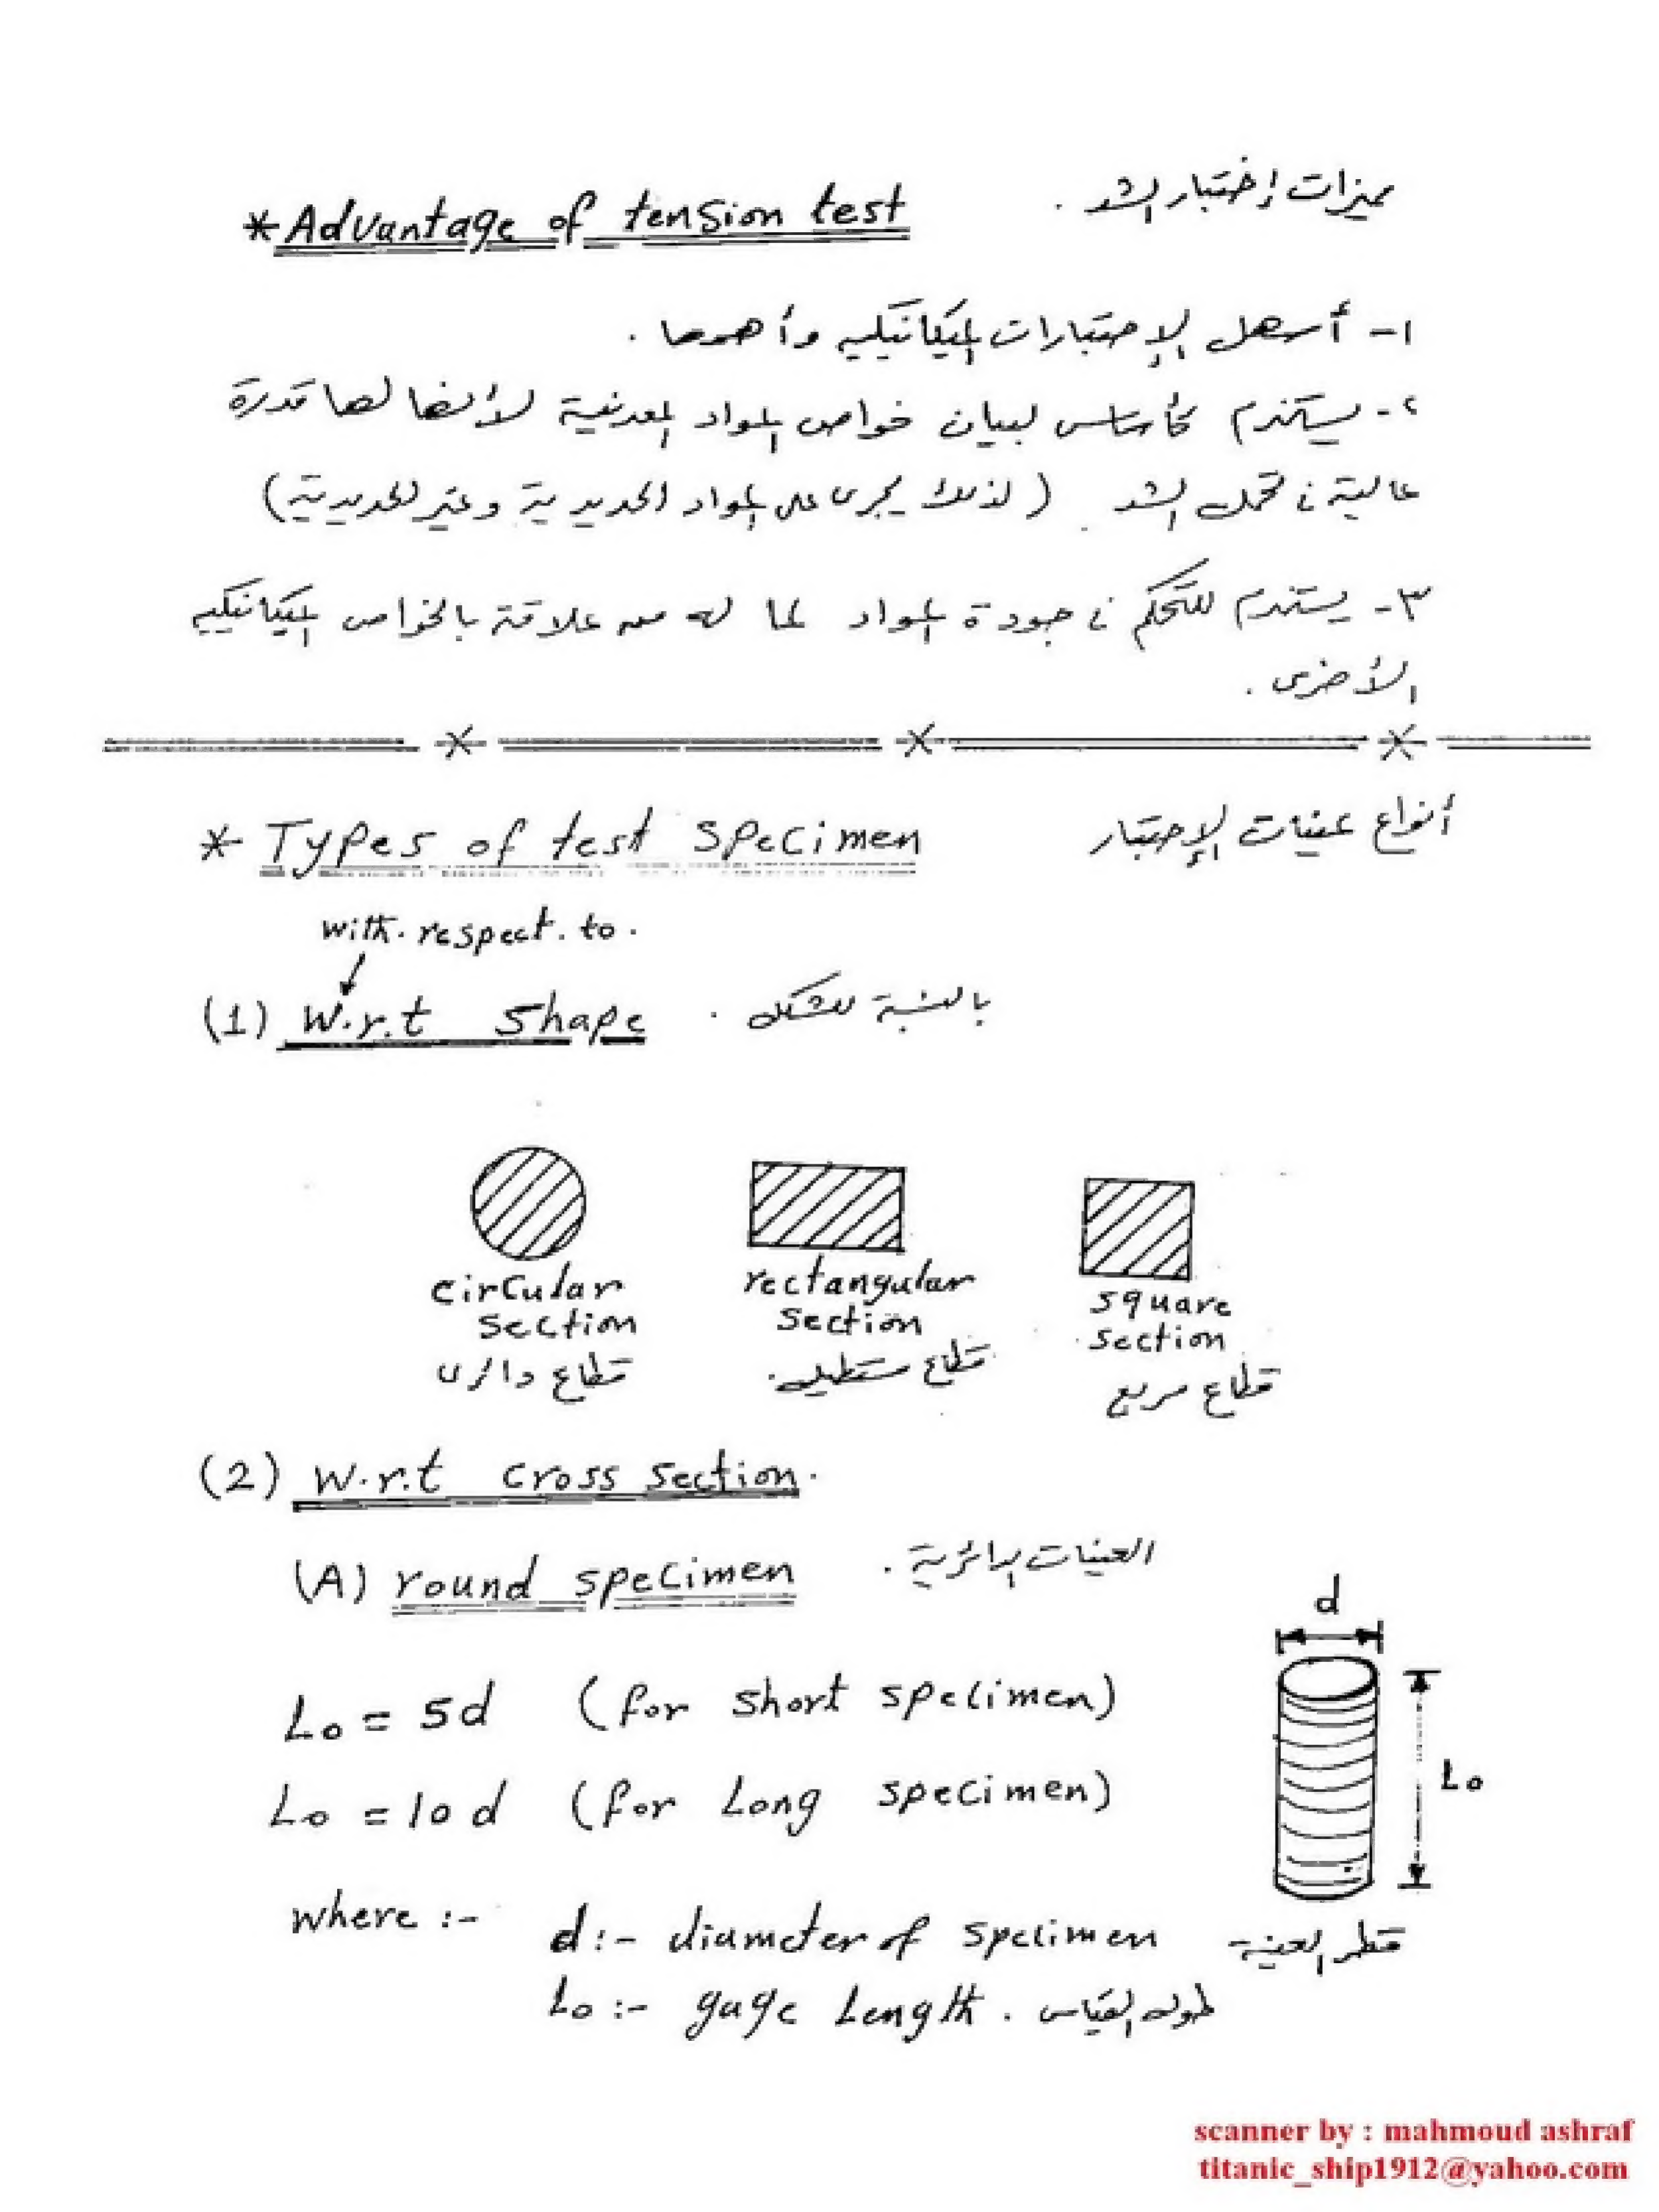 * Advantage of tension test مميزات إختبار الشد .
١- أسهل الإختبارات الميكانيكية وأهمها .
٢- يستخدم كأساس لبيان خواص المواد المعدنية لأنها لها قدرة
عالية في تحمل الشد . ( لذلك يجرى على المواد الحديدية وغير الحديدية )
٣- يستخدم للتحكم في جودة المواد لما له من علاقة بالخواص الميكانيكية
الأخرى .
* Types of test specimen أنواع عينات الإختبار
with. respect. to.
(1) w.r.t shape . بالنسبة للشكل
circular section قطاع دائرى
rectangular section قطاع مستطيل.
square section قطاع مربع
(2) w.r.t cross section.
(A) round specimen العينات الدائرية .
d
Lo = 5d (for short specimen)
Lo
Lo = 10 d (for Long specimen)
where :- d :- diameter of specimen قطر العينة
Lo :- gage Length . طول القياس
scanner by : mahmoud ashraf
titanic_ship1912@yahoo.com